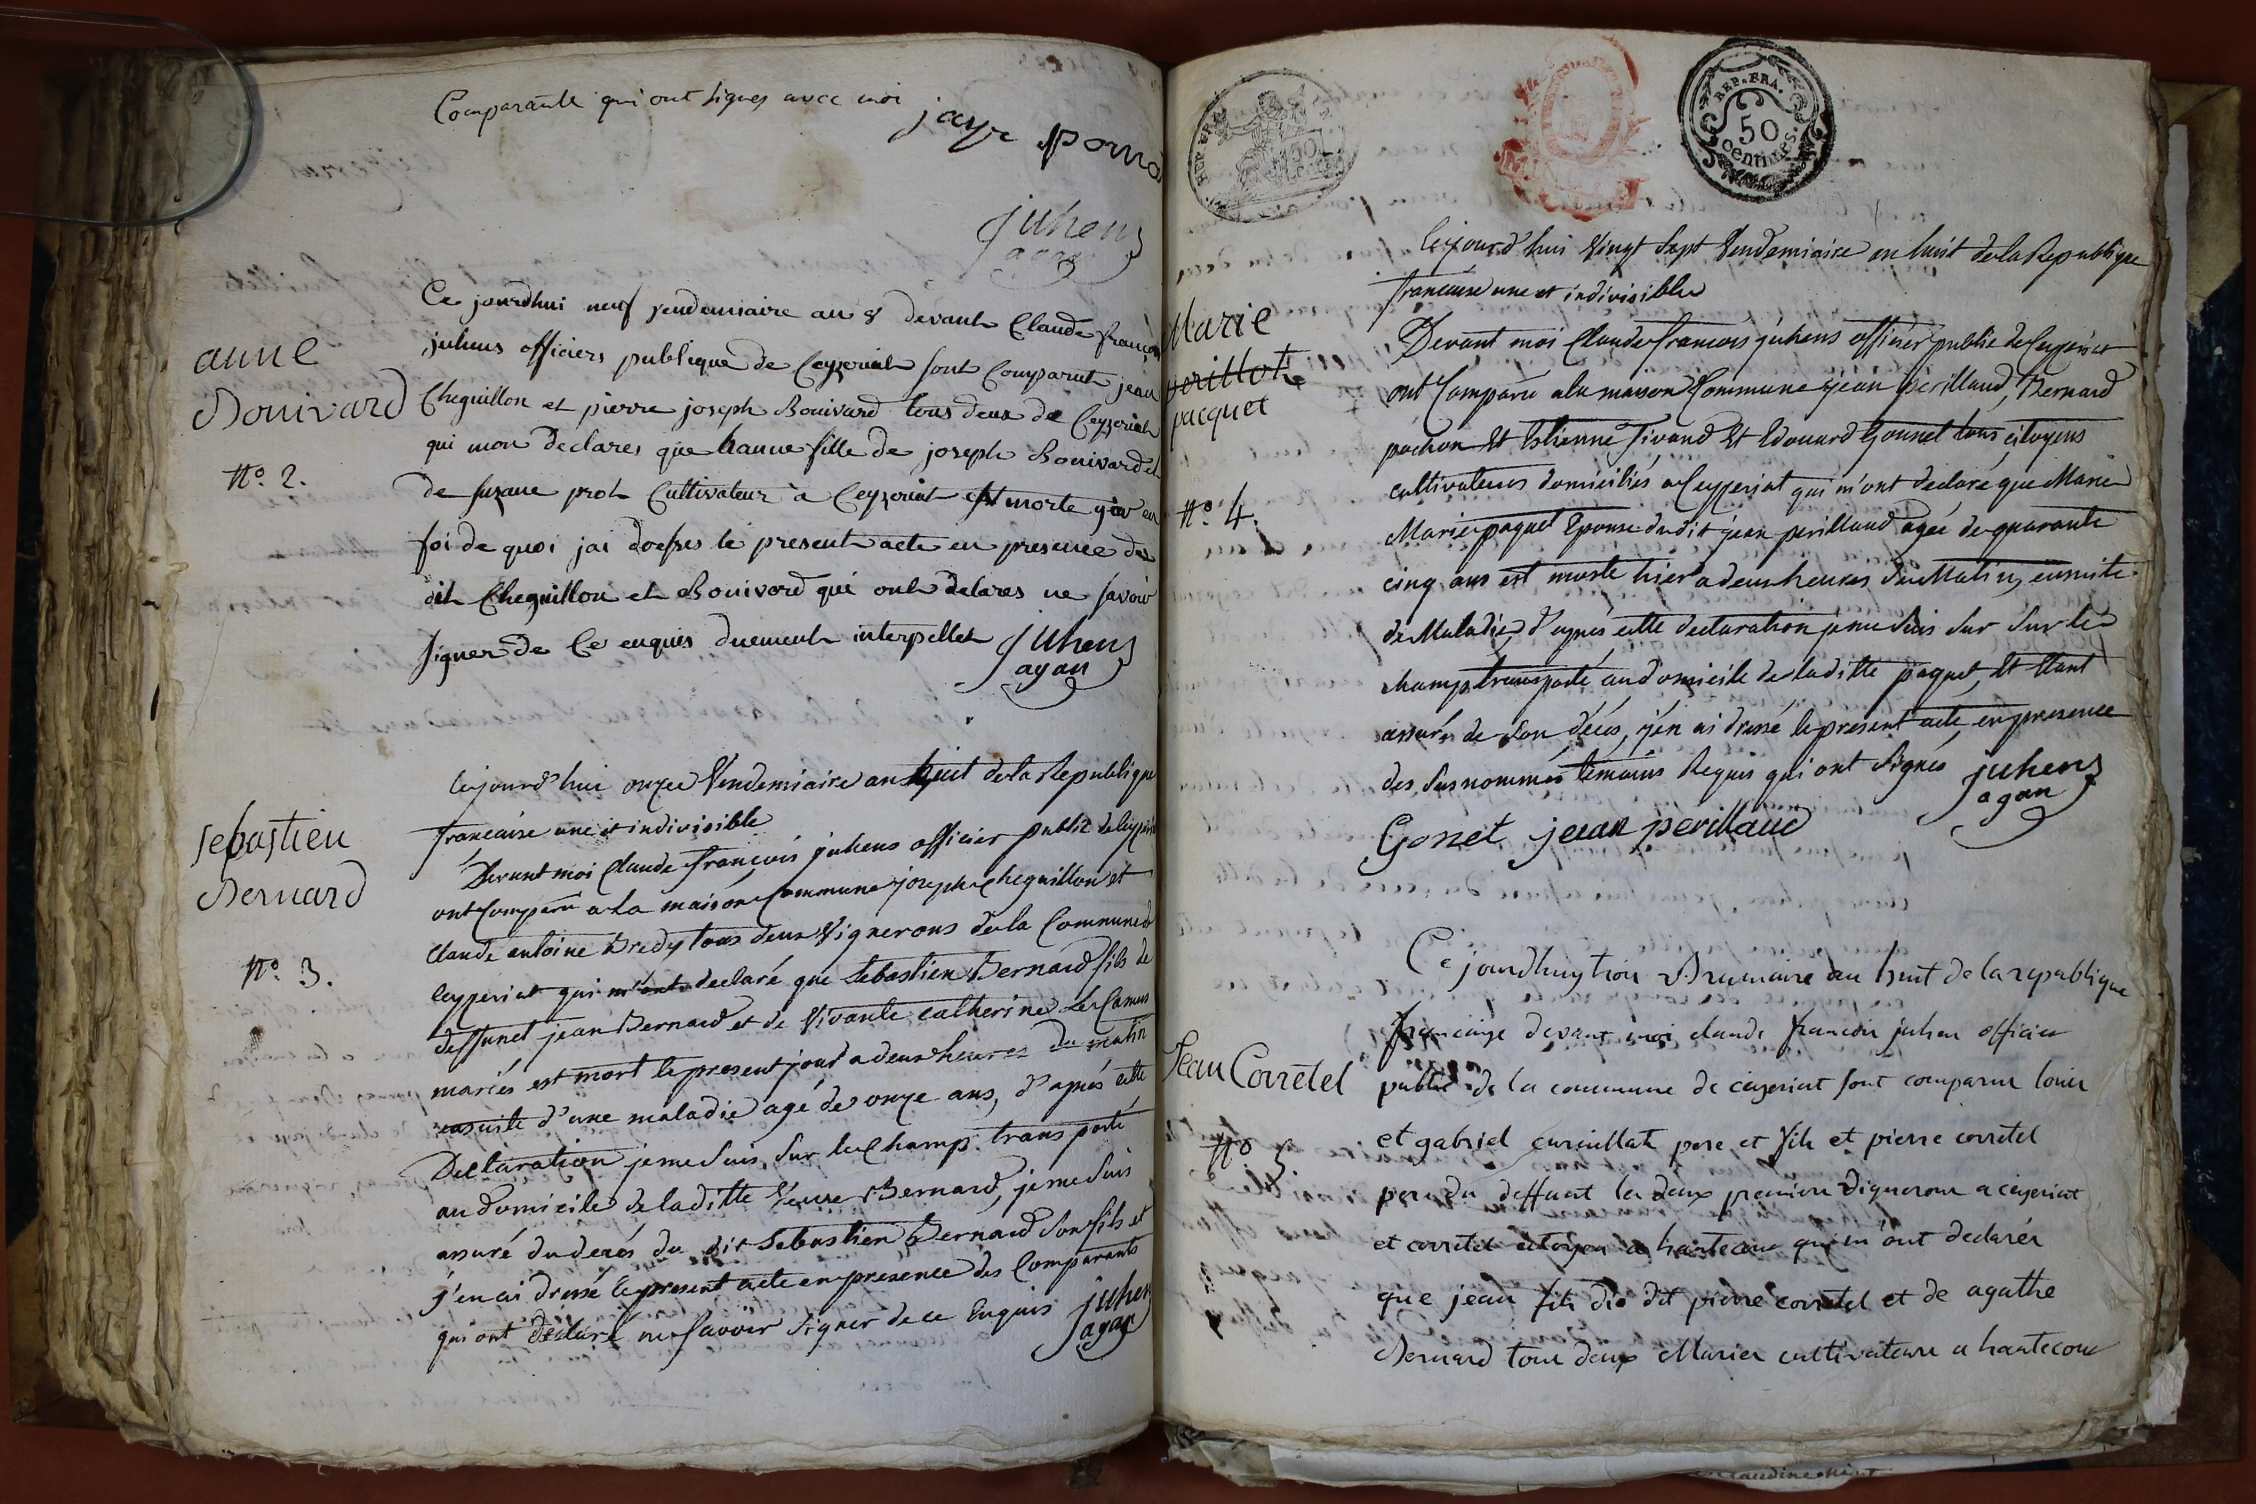 Comparants qui ont signes avec moi
jayr pornd
juhens
agan
anne
Bouivard
N.o 2.
Ce jourdhui neuf vendemiaire an 8 devant Claude françois
juhens officiers publique de Ceyzeriat sont Comparut jean
Cheguillon et pierre joseph Bouivard tous deux de Ceyzeriat
qui mon declares que hanne fille de joseph Bouivard et
de suzane prot Cultivateur a Ceyzeriat est morte en
foi de quoi jai dresses le present acte en presence des
dit Cheguillon et Bouivard qui ont delares ne savoir
signer de Ce enquis duement interpelles juhens
agan
sebastien
Bernard
N.o 3.
Cejourd'huy onze Vendemiaire an huit de la Republique
francaise une et indivisible
Devant moi Claude françois juhens officier public de Ceyzeriat
ont Comparu a la maison Commune joseph Cheguillon et
Claude antoine Bredy tous deux Vignerons de la Commune de
Ceyzeriat qui m'ont declaré que Sebastien Bernard fils de
deffunct jean Bernard et de Vivante catherine Le Camus
mariés est mort le present jour a deux heures du matin
ensuite d'une maladie agé de onze ans, d'aprés cette
Declaration je me suis sur le Champs transporté
au domicile de laditte Veuve Bernard, je me suis
assuré du decés du dit Sebastien Bernard son fils et
j'en ai dressé le present acte en presence des Comparants
qui ont déclaré ne savoir signer de ce Enquis juhens
agan
REP. FRA.
50
REP. FRA.
50
centimes.
Marie
perillot
pacquet
N.o 4.
Cejourd'hui Vingt Sept Vendemiaire an huit de la Republique
francaise une et indivisible
Devant moi Claude francois juhens officier public de Ceyzeriat
ont Comparu a la maison Commune jean perillaud, Bernard
pochon Et Estienne Tivand Et Edouard Gonnet tous citoyens
cultivateurs domiciliés a Ceyzeriat qui m'ont declaré que Marie
Marie paquet Epouse dudit jean perillaud agée de quarante
cinq ans est morte hier a deux heures du Matin, ensuite
de Maladie, d'aprés cette declaration je me suis sur sur le
champ transporté au domicile de laditte paquet, Et Etant
assuré de son décés, j'en ai dressé le present acte en presence
des susnommés témoins Requis qui ont signés juhens
agan
Gonet jean perillaud
Jean Corretel
N.o 5.
Ce jourdhuy trois Brumaire an huit de la republique
francaise devant moi claude francois juhen officier
public de la commune de ceyzeriat sont comparu louis
et gabriel curuillat pere et fils et pierre corretel
pere du deffunt les deux premiers vignerons a ceyzeriat
et corretel citoyen a hautecour qui m'ont declarés
que jean fils du dit pierre corretel et de agathe
Bernard tous deux Mariés cultivateurs a hautecour